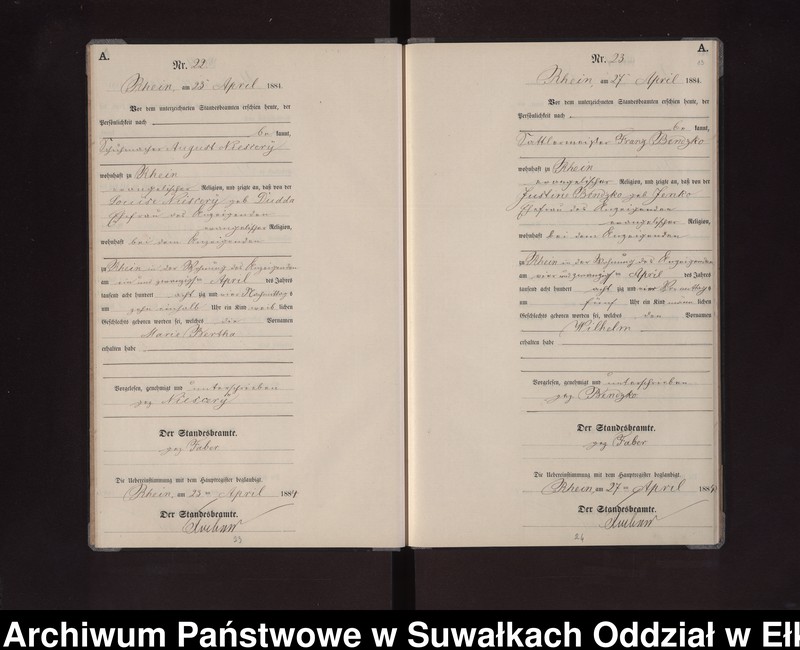 A.
Nr. 22
Rhein, am 25 April 1884
Vor dem unterzeichneten Standesbeamten erschien heute, der
Persönlichkeit nach
be kannt,
Schuhmacher August
wohnhaft zu Rhein
evangelischer Religion, und zeigte an, daß von der
Louise geb Dudda
Ehefrau des Anzeigenden
evangelischer Religion,
wohnhaft bei dem Anzeigenden
zu Rhein in der Wohnung des Anzeigenden
am ein und zwanzigsten April des Jahres
tausend acht hundert acht zig und vier Nachmittags
um zehn einhalb Uhr ein Kind weib lichen
Geschlechts geboren worden sei, welches die Vornamen
Marie Bertha
erhalten habe
Vorgelesen, genehmigt und unterschrieben
gez
Der Standesbeamte.
gez Faber
Die Uebereinstimmung mit dem Hauptregister beglaubigt.
Rhein, am 25 ten April 1884
Der Standesbeamte.
23
A.
13
Nr. 23
Rhein, am 27 April 1884
Vor dem unterzeichneten Standesbeamten erschien heute, der
Persönlichkeit nach
be kannt,
Sattlermeister Franz Bendzko
wohnhaft zu Rhein
evangelischer Religion, und zeigte an, daß von der
Justine Bendzko geb Jenko
Ehefrau des Anzeigenden
evangelischer Religion,
wohnhaft bei dem Anzeigenden
zu Rhein in der Wohnung des Anzeigenden
am vier und zwanzigsten April des Jahres
tausend acht hundert acht zig und vier Vormittags
um fünf Uhr ein Kind männ lichen
Geschlechts geboren worden sei, welches den Vornamen
Wilhelm
erhalten habe
Vorgelesen, genehmigt und unterschrieben
gez Bendzko
Der Standesbeamte.
gez Faber
Die Uebereinstimmung mit dem Hauptregister beglaubigt.
Rhein, am 27 ten April 1884
Der Standesbeamte.
24
Archiwum Państwowe w Suwałkach Oddział w Ełk